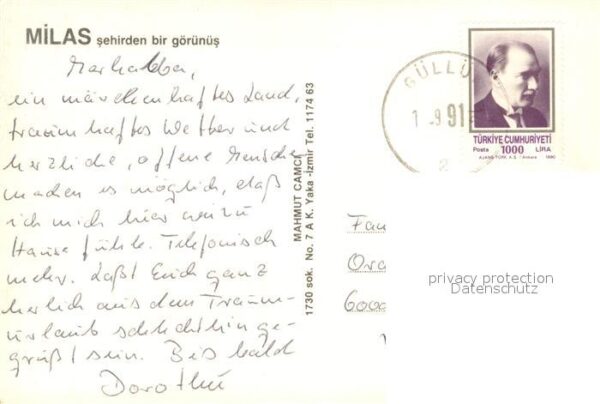 MİLAS şehirden bir görünüş
Merhaba,
ein märchenhaftes Land,
traumhaftes Wetter und
herzliche, offene Menschen
machen es möglich, daß
ich mich hier wie zu
Hause fühle. Telefonisch
mehr. Laßt Euch ganz
herzlich aus dem Traum-
urlaub schlichthin ge-
grüßt sein. Bis bald
MAHMUT CAMCI
1730 sok. No. 7 A K. Yaka-İzmir Tel. 1174 63
GÜLLÜ
1 9 91
TÜRKİYE CUMHURİYETİ
Posta 1000 LİRA
AJANS-TÜRK A.Ş. / Ankara 1990
Fau
Ora
6000
privacy protection
Datenschutz